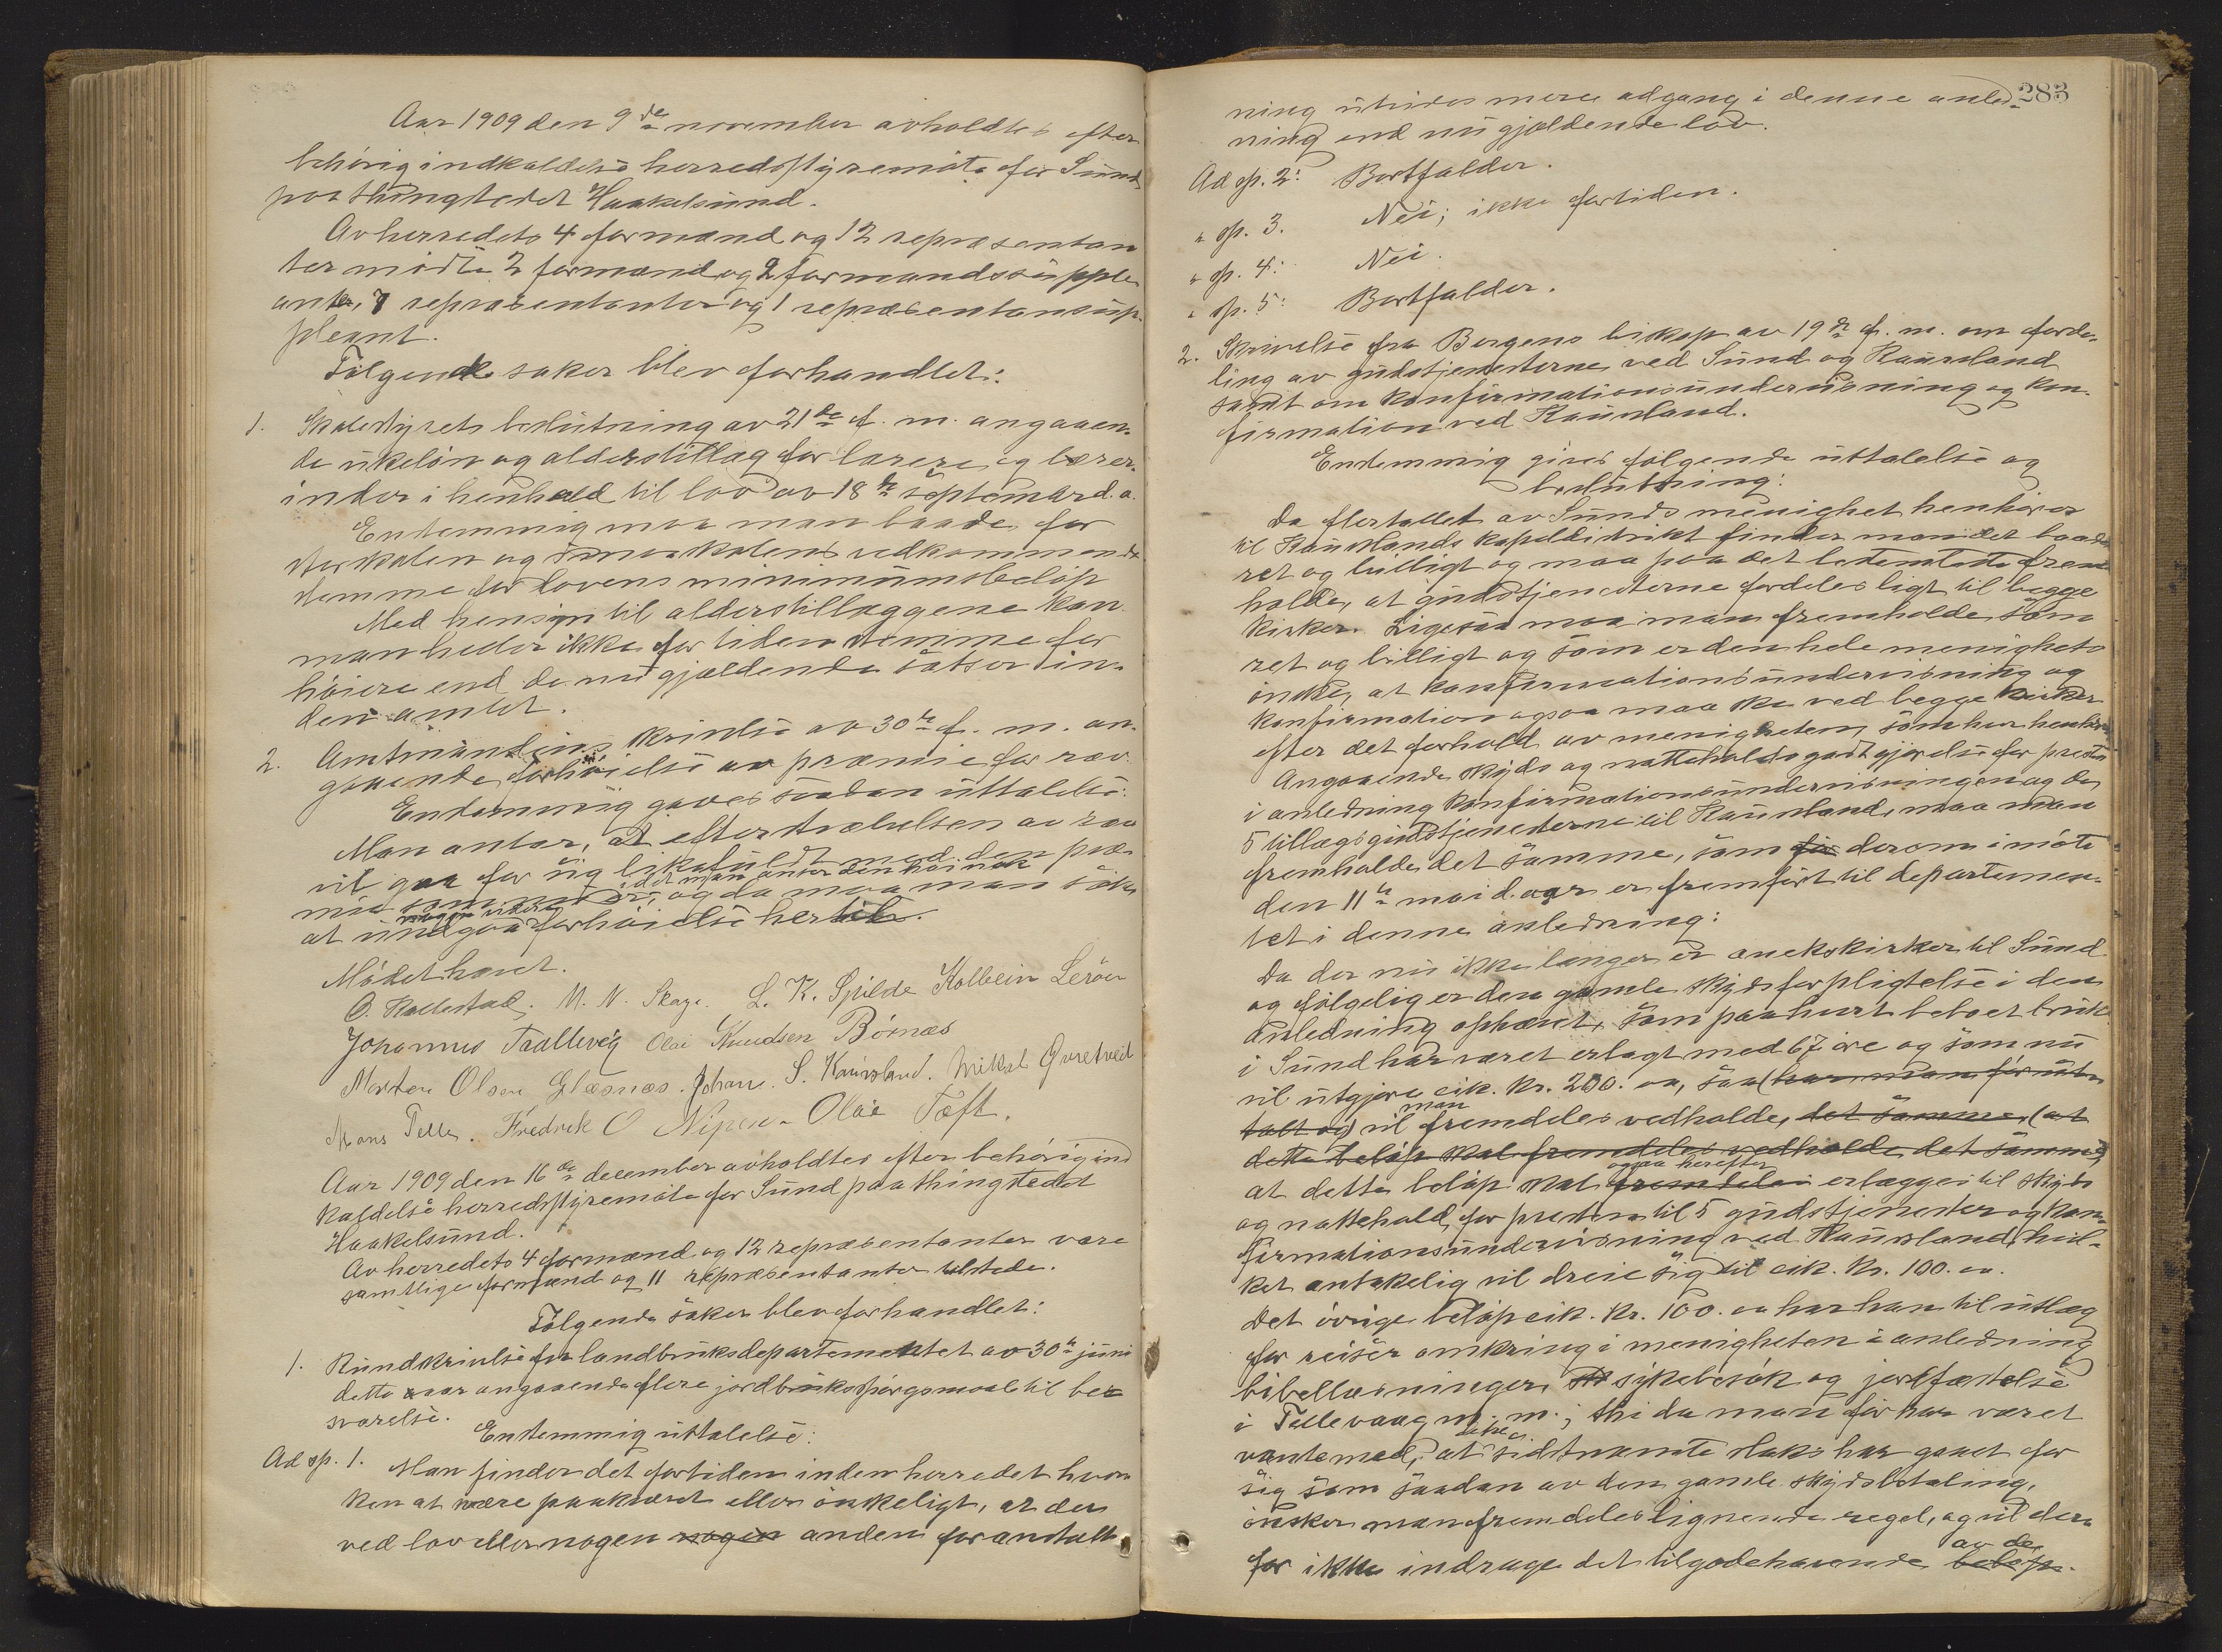 Aar 1909 den 9de november avholdtes efter
behörig indkaldelse herredsstyremöte for Sund
paa thingstedet Haakelsund.
Av herredets 4 formænd og 12 repræsentan
ter mödte 2 formænd og 2 formandssupple
anter, 7 repræsentanter og 1 repræsentansup-
pleant.
Fölgende saker blev forhandlet:
1. Skolestyrets beslutning av 21de f. m. angaaen-
de ukelön og alderstillæg for lærere og lærer-
inder i henhold til lov av 18de september d. a.
Enstemmig maa man baade for
storskolen og smaaskolens vedkommende
stemme for lovens minimumsbelöp
Med hensyn til alderstillæggene kan
man heller ikke for tiden stemme for
höiere end de nu gjældende satser in-
den amtet.
2. Amtmandens skrivelse av 30te f. m. an-
gaaende forhöielse av præmie for ræv.
Enstemmig gaves saadan uttalelse:
Man antar, at efterstræbelsen av ræv
vil gaa for sig likefuldt med den præ-
mie som nu er, idet man antar den höi nok
og da maa man söke
at undgaa nogen videre forhöielse hertil.
Mödet hævet.
O. Kallestad. M. N. Skage. L. K. Spilde Kolbein Leröen
Johannes Taallevig Olai Knudsen Börnæs
Morten Olsen Glæsnæs. Johan. S. Kausland. Mikal Qvretveit
Mons Telle. Fredrik O Nipen. Olai Toft.
Aar 1909 den 16de december avholdtes efter behörig ind
kaldelse herredsstyremöte for Sund paa thingstedet
Haakelsund.
Av herredets 4 formænd og 12 repræsentanter vare
samtlige formænd og 11 repræsentanter tilstede.
Fölgende saker blev forhandlet:
1. Rundskrivelse fra landbruksdepartementet av 30te juni
dette aar angaaende flere jordbruksspörgsmaal til be-
svarelse.
Enstemmig uttalelse:
Ad sp. 1. Man finder det fortiden inden herredet hver-
ken at være paakrævet eller önskeligt, at der
ved lov eller nogen nogen anden foranstalt-
283
ning utvides mere adgang i denne anled-
ning end nu gjældende lov.
Ad sp. 2: Bortfalder.
" sp. 3. Nei; ikke fortiden.
" sp. 4: Nei.
" sp. 5: Bortfalder.
2. Skrivelse fra Bergens biskop av 19de f. m. om forde-
ling av gudstjenesterne ved Sund og Kausland
samt om konfirmationsundervisning og kon-
firmation ved Kausland.
Enstemmig gives fölgende uttalelse og
beslutning:
Da flertallet av Sunds menighet henhörer
til Kauslands kapeldistrikt finder man det baade
ret og billigt og maa paa det bestemteste frem
holde, at gudstjenesterne fordeles ligt til begge
kirker. Ligesaa maa man fremholde som
ret og billigt og som er den hele menighets
önske, at konfirmationsundervisning og
konfirmation ogsaa maa ske ved begge kirker
efter det forhold av menigheten, som her henhörer.
Angaaende skyds og natteholdsgodtgjörelse for presten
i anledning konfirmationsundervisningen og de
5 tillægsgudstjenesterne til Kausland, maa man
fremholde det samme, som för derom i möte
den 11te mai d. aar er fremfört til departemen-
tet i denne anledning:
Da der nu ikke længer er anekskirker til Sund
og fölgelig er den gamle skydsforpligtelse i den
anledning ophævet, som paa hvert beboet bruk
i Sund har været erlagt med 67 öre og som nu
vil utgjöre cik. Kr. 200.oo, saa (har man för utt-
talt og) vil man fremdeles vedholde, det samme, (at
dette belöp skal fremdeles vedholde det samme,
at dette belöp skal fremdeles ogsaa herefter erlægges til skyds
og nattehold for presten til 5 gudstjenester og kon-
firmationsundervisning ved Kausland, hvil-
ket antakelig vil dreie sig til cik. Kr. 100.oo.
Det övrige belöp cik. Kr. 100.oo har han til utlæg
for reiser omkring i menigheten i anledning
bibellæsninger, sykebesök og jordfæstelse
i Tellevaag m. m.; thi da man för har været
vante med, at sidstnævnte slaks har gaaet for
sig som saadan av den gamle skydsbetaling,
önsker man fremdeles lignende regel, og vil der-
for ikke indrage det tilgodehavende belöp av de